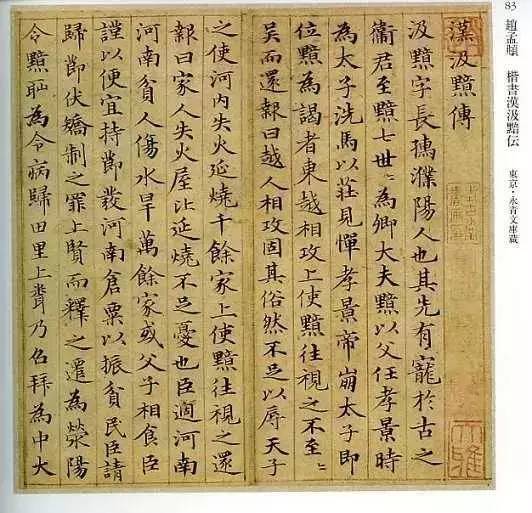 83 趙孟頫 楷書漢汲黯伝 東京・永青文庫蔵
漢汲黯傳
汲黯字長孺濮陽人也其先有寵於古之
衛君至黯七世〻為卿大夫黯以父任孝景時
為太子洗馬以莊見憚孝景帝崩太子即
位黯為謁者東越相攻上使黯往視之不至〻
吴而還報曰越人相攻固其俗然不足以辱天子
之使河内失火延燒千餘家上使黯往視之還
報曰家人失火屋比延燒不足憂也臣適河南
河南貧人傷水旱萬餘家或父子相食臣
謹以便宜持節發河南倉粟以振貧民臣請
歸節伏矯制之罪上賢而釋之遷為滎陽
令黯恥為令病歸田里上聞乃召拜為中大